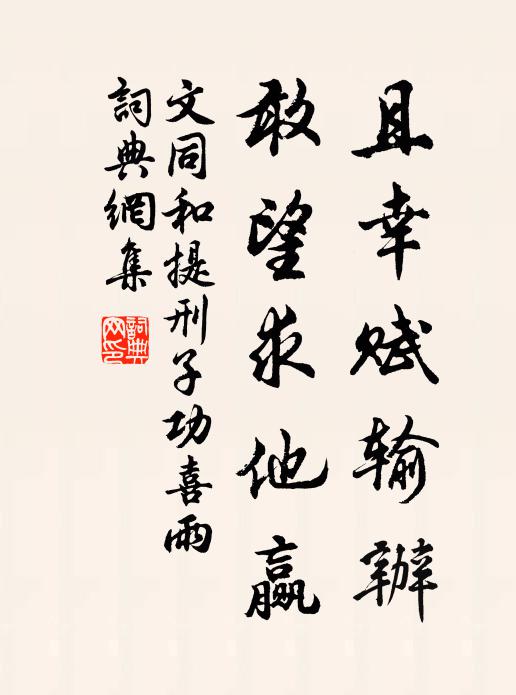 且幸赋输辦
敢望求他赢
文同和提刑子功喜雨
詞典網集
詞典網印